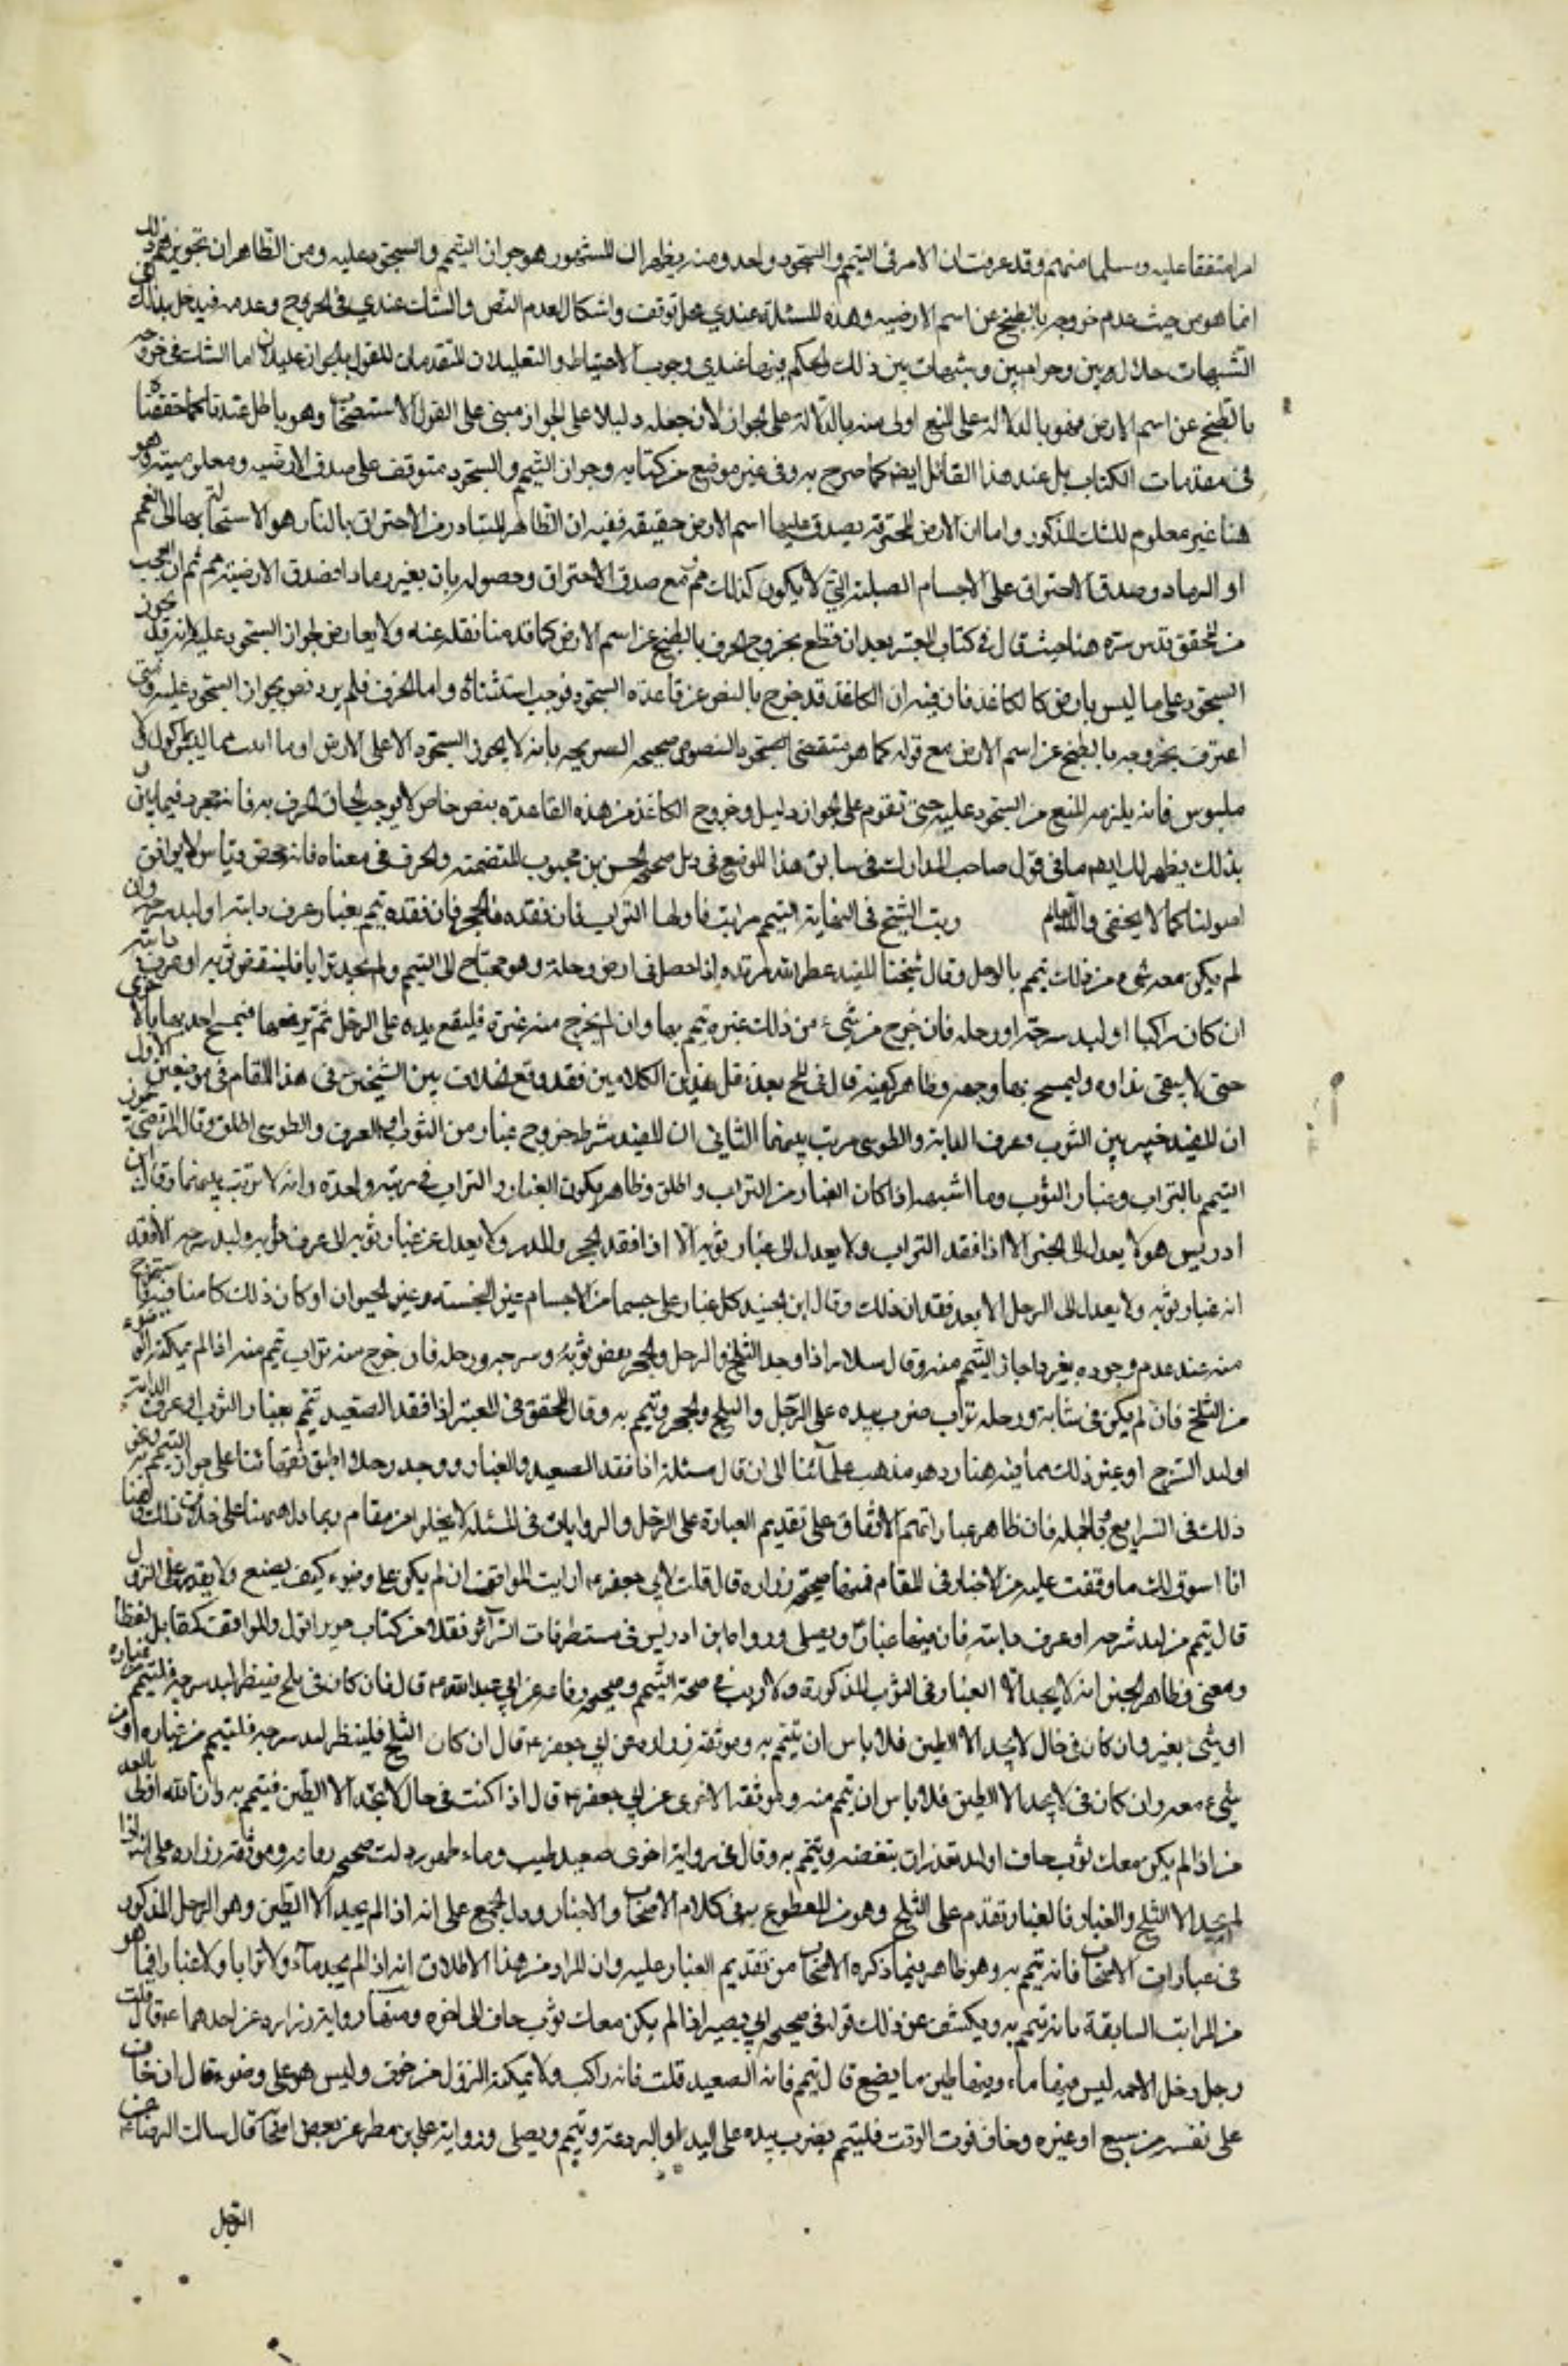 امرا متفقا عليه ومسلما منهم وقد عرفت ان الامر في التيمم والسجود واحد ومنه يظهر ان المشهور هو جواز التيمم والسجود عليه ومن الظاهر ان تجويزهم لذلك
انما هو من حيث عدم خروجه بالطبخ عن اسم الارضيه وهذه المسئلة عندي محل توقف واشكال لعدم النص والشك عندي في الخروج وعدمه فيدخل بذلك في
الشبهات حلال بين وحرام بين وشبهات بين ذلك والحكم فيها عندي وجوب الاحتياط والتعليلان المتقدمان للقول بالجواز عليلان اما الشك في خروجه
بالطبخ عن اسم الارض فهو بالدلالة على المنع اولى منه بالدلالة على الجواز لان جعله دليلا على الجواز مبنى على القول بالاستصحاب وهو باطل عندنا كما حققناه
في مقدمات الكتاب بل عند هذا القائل ايضا كما صرح به في غير موضع من كتابه وجواز التيمم والسجود متوقف على صدق الارضيه ومعلوميته وهو
هنا غير معلوم للشك المذكور واما ان الارض المحترقة يصدق عليها اسم الارض حقيقة ففيه ان الظاهر المتبادر من الاحتراق بالنار هو الاستحالة بها الى الفحم
او الرماد وصدق الاحتراق على الاجسام الصلبة التي لا يكون كذلك مم نعم مع صدق الاحتراق وحصوله بان يغير رمادا فصدق الارضية مم ثم ان العجب
من المحقق قدس سره هنا حيث قال في كتاب المعتبر بعد ان قطع بخروج الخزف بالطبخ عن اسم الارض كما قدمنا نقله عنه ولا يعارض لجواز السجود عليه لانه قد يجوز
السجود على ما ليس بارض كالكاغذ فان فيه ان الكاغذ قد خرج بالنص عن قاعدة السجود فوجب استثناؤه واما الخزف فلم يرد نص بجواز السجود عليه ومتى
اعترف بخروجه بالطبخ عن اسم الارض مع قوله كما هو مقتضى النصوص الصحيحه الصريحه بانه لا يجوز السجود الا على الارض او ما انبت مما ليس بماكول ولا
ملبوس فانه يلزمه المنع من السجود عليه حتى تقوم على الجواز دليل وخروج الكاغذ من هذه القاعدة بنص خاص لا يوجب الحاق الخزف به فانه بمجرده قياس
بذلك يظهر لك ايضا ما في قول صاحب المدارك في سابق هذا الموضع في ذيل صحيح الحسن بن محبوب المتضمنه والخزف في معناه فانه محض قياس لا يوافق
اصولنا كما لا يخفى والله العالم رتب الشيخ في النهاية التيمم مراتب فاولها التراب فان فقده فالحجر فان فقده تيمم بغبار عرف دابته او لبد سرجه وان
لم يكن معه شيء من ذلك تيمم بالوحل وقال شيخنا المفيد عطر الله مرقده واذا حصل في ارض وحلة وهو محتاج الى التيمم ولم يجد ترابا فلينفض ثوبه او عرف دابته
ان كان راكبا او لبد سرجه او رحله فان خرج من شيء من ذلك غبرة تيمم بها وان لم يخرج منه غبرة فليضع يده على الوحل ثم يرفعها فيمسح احديهما بالاخرى
حتى لا يبقى نداوه وليمسح بها وجهه وظاهر كفيه قال في المع بعد نقل هذين الكلامين فقد وقع الخلاف بين الشيخين في هذا المقام في موضعين الاول
ان المفيد خير بين الثوب وعرف الدابة والطوسي مرتب بينهما الثاني ان المفيد شرط خروج غبار من الثوب او العرف والطوسي اطلق وقال المرتضى يجوز
التيمم بالتراب وغبار الثوب وما اشبهه اذا كان الغبار من التراب واطلق وظاهره كون الغبار والتراب في مرتبة واحدة وانه لا ترتيب بينهما وقال ابن
ادريس هو لا يعدل الى الحجر الا اذا فقد التراب ولا يعدل الى غبار ثوبه الا اذا فقد الحجر والمدر ولا يعدل عن غبار ثوبه الى عرف دابته ولبد سرجه الا فقد
انه غبار ثوبه ولا يعدل الى الوحل الا بعد فقدان ذلك وقال ابن الجنيد كل غبار على جسم من الاجسام غير النجسة وغير الحيوان او كان ذلك كامنا فيه فاستخرج
منه عند عدم وجوده بغيرها جاز التيمم منه وقال سلار اذا وجد الثلج والوحل والحجر نفض ثوبه وسرجه ورحله فان خرج منه تراب تيمم منه اذا لم يمكنه التوضوء
من الثلج فان لم يكن في ثيابه ورحله تراب ضرب بيده على الوحل والثلج والحجر وتيمم به وقال المحقق في المعتبر اذا فقد الصعيد تيمم بغبار الثوب او عرف الدابة
او لبد السرج او غير ذلك مما فيه غبار وهو مذهب علمائنا الى ان قال مسئلة اذا فقد الصعيد والغبار ووجد وحلا اطبق فقهائنا على جواز التيمم به ونحو
ذلك في الشرايع وبالجملة فان ظاهر عباراتهم الاتفاق على تقديم الغبار على الوحل والروايات في المسئلة لا يخلو من مقام وربما دل بعضها على خلاف ذلك وها
انا اسوق لك ما وقفت عليه من الاخبار في المقام فمنها صحيحة زراره قال قلت لابي جعفر ع ارايت المواقف ان لم يكن على وضوء كيف يصنع ولا يقدر على النزول
قال يتيمم من لبد سرجه او عرف دابته فان فيها غبارا ويصلى ورواه ابن ادريس في مستطرفات السرائر نقلا من كتاب حريز اقول والمواقف كمقابل لفظا
ومعنى وظاهر الخبر انه لا يجد الا الغبار في الثوب المذكورة ولا ريب في صحة التيمم وصحيحه رفاعه عن ابي عبد الله ع قال فان كان في ثلج فلينظر لبد سرجه فليتيمم من غباره
او شيء مغبر وان كان في حال لا يجد الا الطين فلا باس ان يتيمم به وموثقة زراره عن ابي جعفر ع قال ان كان الثلج فلينظر لبد سرجه فليتيمم من غباره او من
شيء معه وان كان في لا يجد الا الطين فلا باس ان يتيمم منه وموثقة الاخرى عن ابي جعفر ع قال اذا كنت في حال لا تجد الا الطين فتيمم به فان الله اولى بالعذر
من اذا لم يكن معك ثوب جاف او لبد تقدر ان تنفضه وتتيمم به وقال في رواية اخرى صعيد طيب وماء طهور دلت صحيحه رفاعه وموثقة زراره على انه اذا
لم يجد الا الثلج والغبار فالغبار تقدم على الثلج وهو من المقطوع به في كلام الاصحاب والاخبار ودل الجميع على انه اذا لم يجد الا الطين وهو الوحل المذكور
في عبارات الاصحاب فانه يتيمم به وهو ظاهر فيما ذكره الاصحاب من تقديم الغبار عليه وان المراد من هذا الاطلاق انه اذا لم يجد ماء ولا ترابا ولا غبارا فيما هو
من المراتب السابقة فانه تيمم به ويكشف عن ذلك قوله في صحيح ابي بصير اذا لم يكن معك ثوب جاف الى اخره ومنها رواية زراره عن احدهما ع قال قلت
رجل دخل الاجمه ليس فيها ماء وفيها طين ما يصنع قال يتيمم فانه الصعيد قلت فانه راكب ولا يمكنه النزول من خوف وليس هو على وضوء قال ان خاف
على نفسه من سبع او غيره وخاف فوت الوقت فليتيمم يضرب بيده على اللبد او البردعة ويتيمم ويصلى ورواية علي بن مطر عن بعض اصحابنا قال سالت الرضا ع عن
الرجل